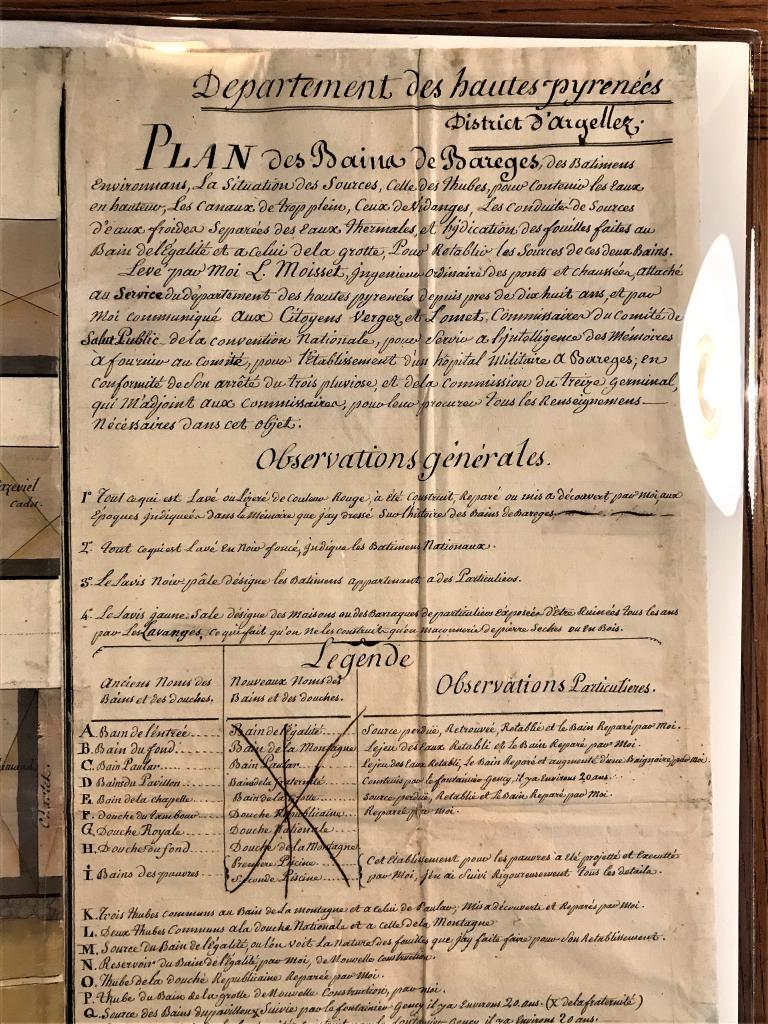 Departement des hautes pyrenées
District d'argellez;
PLAN des Bains de Bareges, des Batimens
Environnans, La Situation des Sources, Celle des Thubes, pour Contenir les Eaux
en hauteur, Les Canaux de trop plein, Ceux de Vidanges, Les Conduits de Sources
d'eaux froides Separées des Eaux thermales, et Indication des fouilles faites au
Bain de l'Egalité et a Celui de la grotte, Pour Retablir les Sources de ces deux Bains.
Levé par Moi L. Moisset, ingenieur ordinaire des ponts et chaussées, attaché
au Service du département des hautes pyrenées depuis pres de dix huit ans, et par
Moi Communiqué aux Citoyens Vergez et Lomet, Commissaires du Comité de
Salut Public de la convention Nationale, pour Servir a l'intelligence des Mémoires
a fournir au Comité, pour l'établissement d'un hopital Militaire a Bareges; en
Conformité de Son arrêté du trois pluviose, et de la Commission du treize Germinal,
qui M'adjoint aux Commissaires, pour leur procurer tous les Renseignemens
Nécéssaires dans cet objet.
Observations générales.
1º Tout ce qui est Lavé ou Lizeré de Couleur Rouge, a été Construit, Reparé ou mis a découvert par moi, aux
Epoques indiquées dans le Mémoire que jay dressé Sur l'histoire des Bains de Bareges.
2º Tout ce qui est Lavé En Noir foncé, indique les Batimens Nationaux.
3º Le Lavis Noir pâle désigne les Batimens appartenant a des Particuliers.
4º Le Lavis jaune Sale désigne des Maisons ou des Barraques de particuliers Exposées d'Etre Ruinées tous les ans
par Les Lavanges, Ce qui fait qu'on Ne les Construit qu'en maçonnerie de pierre Seches ou En Bois.
Legende
Anciens Noms des
Bains et des douches.
Nouveaux Noms des
Bains et des douches.
Observations Particulieres.
A. Bain de l'entrée Bain de l'égalité Source perdüe, Retrouvée, Retablie et le Bain Reparé par Moi.
B. Bain du fond Bain de la Montagne Le jeu des Eaux Retabli et le Bain Reparé par Moi.
C. Bain Paular Bain Paular Le jeu des Eaux Retabli, Le Bain Reparé et augmenté d'une Baignoire, par moi
D Bain du Pavillon Bain de la fraternité Construits par le fontainier Gency, il y a Environs 20 ans.
E. Bain de la chapelle Bain de la Grotte Source perdüe, Retablie et Le Bain Reparé par Moi.
F. Douche du tambour Douche Républicaine Reparée par Moi.
G. Douche Royale Douche Nationale
H. Douche du fond Douche de la Montagne
I. Bains des pauvres Premiere Piscine Cet Etablissement pour les pauvres a été projetté et Executté
Seconde Piscine par Moi, j'en ai Suivi Rigoureusement Tous les details.
K. Trois Thubes Communs au Bain de La montagne et a Celui de Paular; Mis a découverte et Reparés par Moi.
L. Deux Thubes Communs a la douche Nationale et a Celle de la Montagne
M. Source du Bain de l'égalité, ou l'on Voit La Nature des fouilles que jay faite faire pour Son Retablissement.
N. Reservoir du Bain de l'égalité, par Moi, de Nouvelle Construction.
O. Thube de la douche Republicaine Reparée par Moi.
P. Thube du Bain de la grotte de Nouvelle Construction, par moi.
Q. Source des Bains du pavillon Suivie par le fontainier Gency il y a Environs 20 ans. (X de la fraternité)
Cadet.